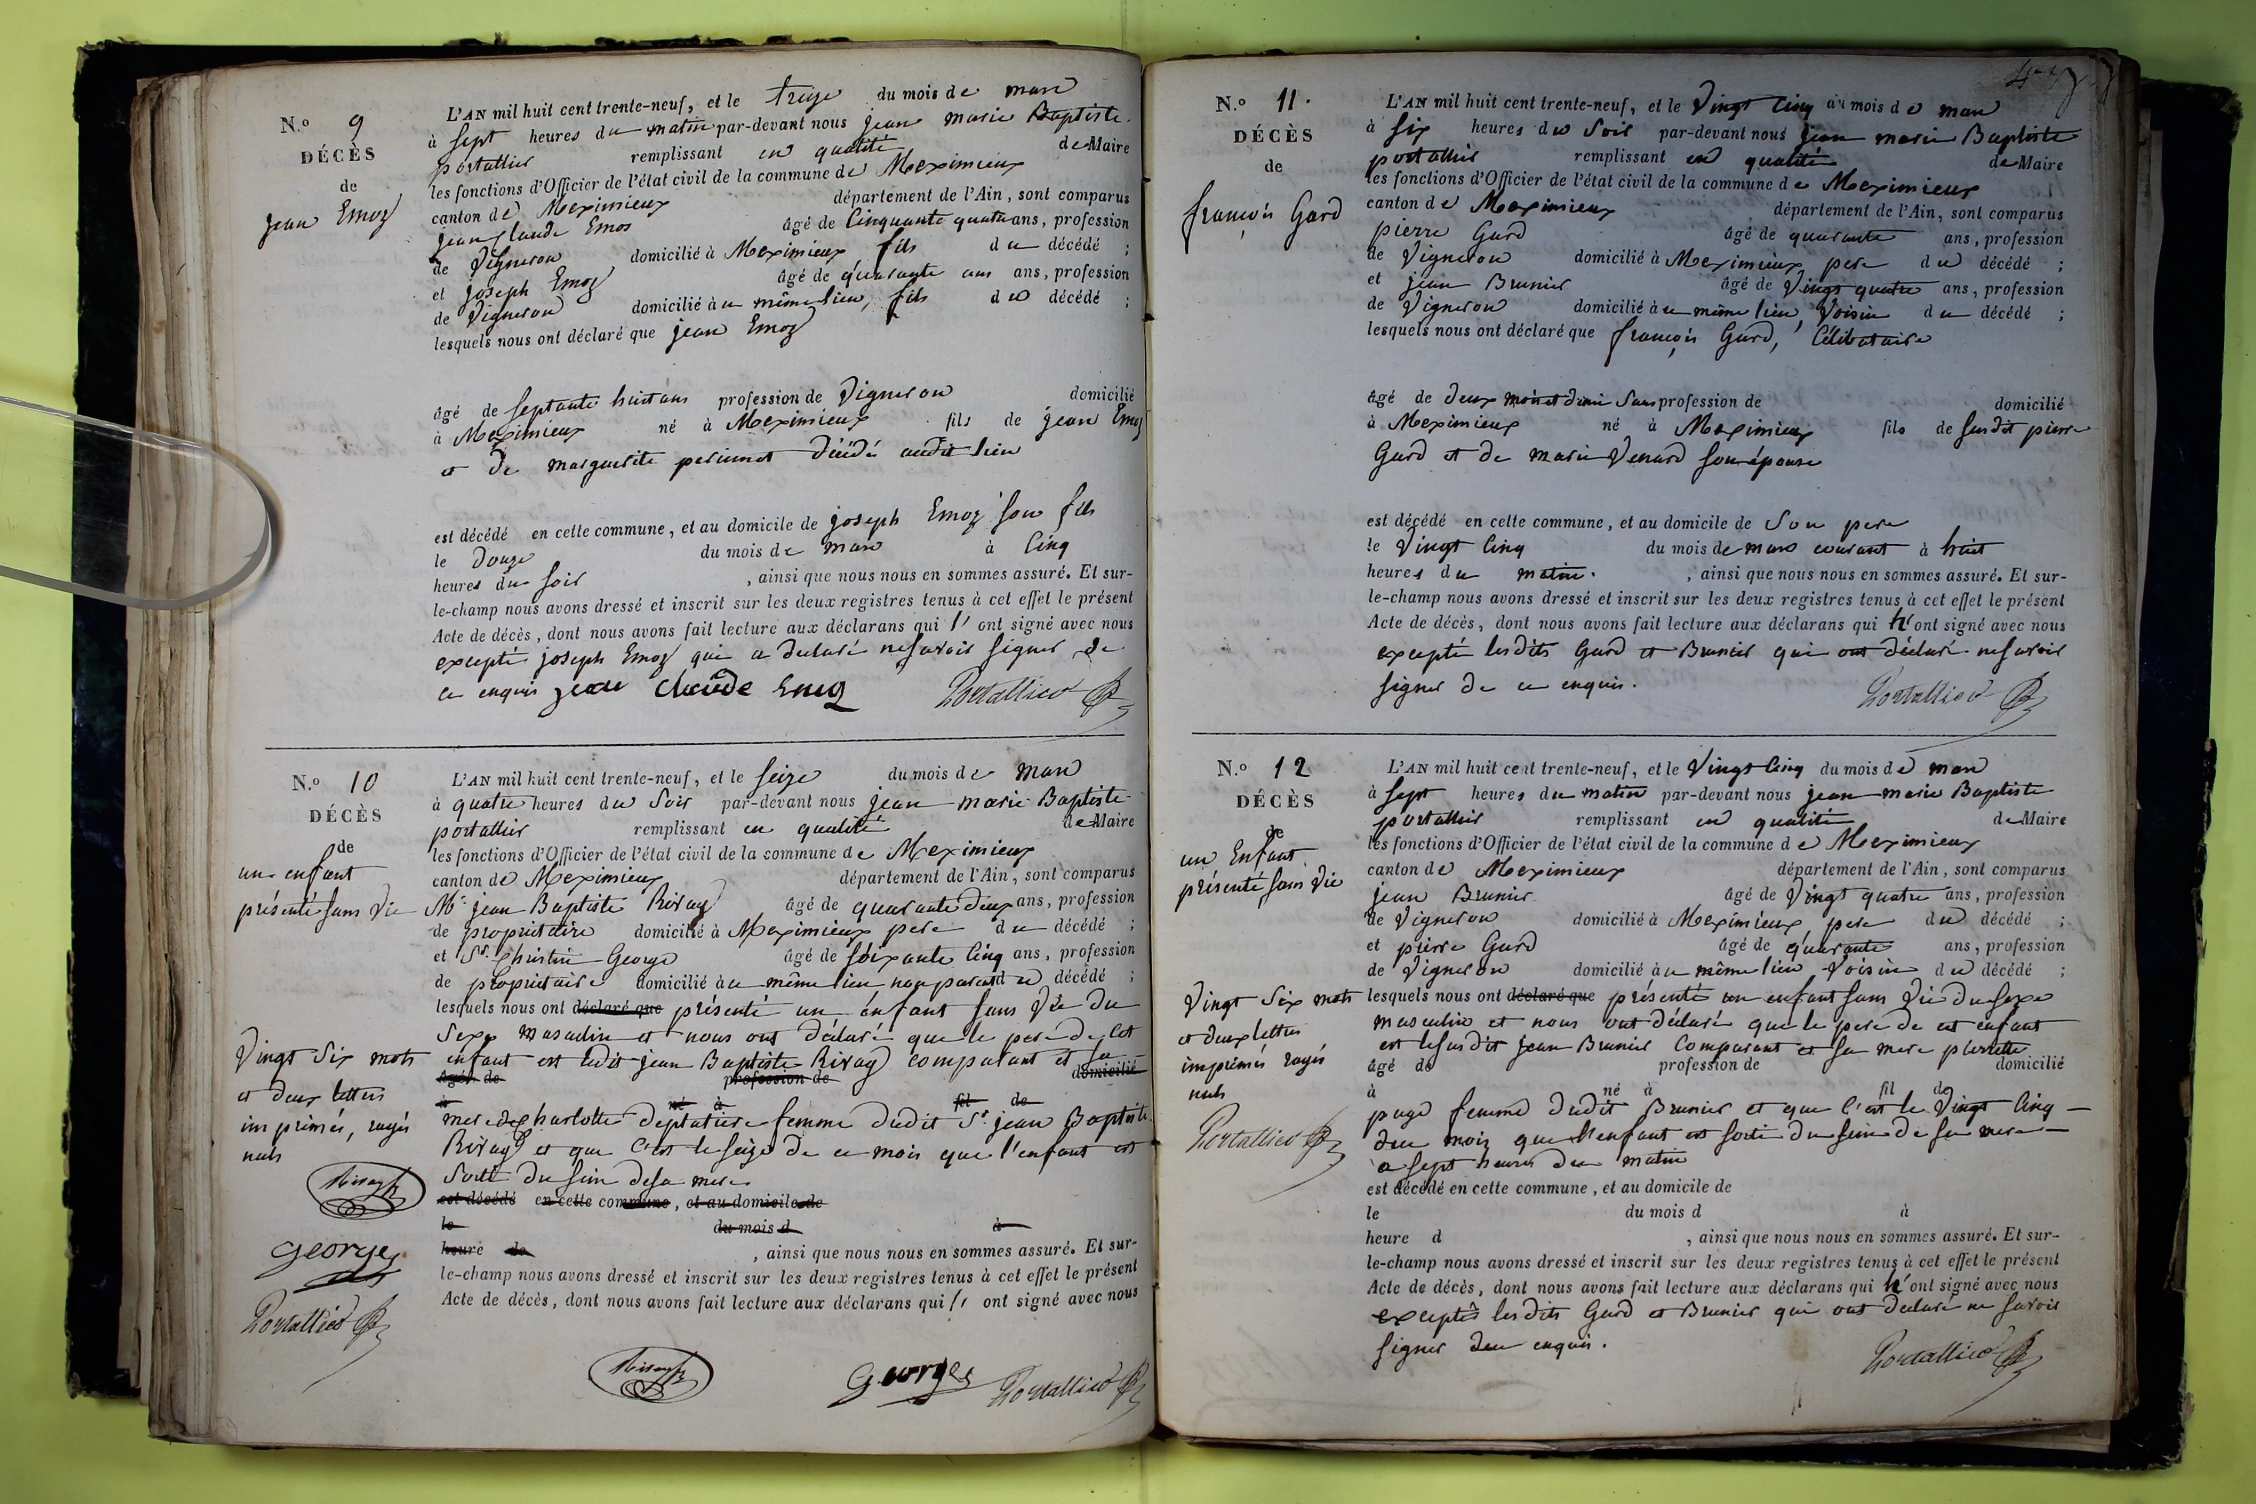 N.º 9
DÉCÈS
de
jean Emoz
L'AN mil huit cent trente-neuf, et le treize du mois de mars
à sept heures du matin par-devant nous jean marie Baptiste
portallier remplissant en qualité de Maire
les fonctions d'Officier de l'état civil de la commune de Meximieux
canton de Meximieux département de l'Ain, sont comparus
jean Claude Emos âgé de Cinquante quatre ans, profession
de Vigneron domicilié à Meximieux fils du décédé ;
et joseph Emoz âgé de quarante ans ans, profession
de Vigneron domicilié à u même lieu, fils du décédé ;
lesquels nous ont déclaré que jean Emoz
âgé de septante huit ans profession de Vigneron domicilié
à Meximieux né à Meximieux fils de jean Emoz
et de marguerite perionet décédé audit lieu
est décédé en cette commune, et au domicile de joseph Emoz son fils
le douze du mois de mars à Cinq
heures du soir , ainsi que nous nous en sommes assuré. Et sur-
le-champ nous avons dressé et inscrit sur les deux registres tenus à cet effet le présent
Acte de décès, dont nous avons fait lecture aux déclarans qui l' ont signé avec nous
excepté joseph Emoz qui a declaré ne savoir signer de
ce enquis jean claude Emoz Portallier
N.º 10
DÉCÈS
de
un enfant
présenté sans vie
L'AN mil huit cent trente-neuf, et le seize du mois de mars
à quatre heures du soir par-devant nous jean marie Baptiste
portallier remplissant en qualité de Maire
les fonctions d'Officier de l'état civil de la commune de Meximieux
canton de Meximieux département de l'Ain, sont comparus
Mr jean Baptiste Rivag âgé de quarante deux ans, profession
de propriétaire domicilié à Meximieux pere du décédé ;
et Sr. Christin George âgé de soixante Cinq ans, profession
de propriétaire domicilié à u même lieu non parent du décédé ;
lesquels nous ont déclaré que présenté un enfant sans Vie du
Sexe masculin et nous ont déclaré que le pere de cet
enfant est ledit jean Baptiste Rivag comparant et sa
âgé de profession de domicilié
à né à fil de
mere de Charlotte femme dudit Sr. jean Baptiste
Rivag et que C'est le seize de ce mois que l'enfant est
Sorti du sein de sa mere
est décédé en cette commune, et au domicile de
le du mois d à
heure de , ainsi que nous nous en sommes assuré. Et sur-
le-champ nous avons dressé et inscrit sur les deux registres tenus à cet effet le présent
Acte de décès, dont nous avons fait lecture aux déclarans qui l' ont signé avec nous
Vingt Six mots
et deux lettres
imprimés, rayés
nuls
George
Portallier
George Portallier
N.º 11.
DÉCÈS
de
françois Gard
L'AN mil huit cent trente-neuf, et le Vingt Cinq du mois de mars
à six heures du soir par-devant nous jean marie Baptiste
portallier remplissant en qualité de Maire
les fonctions d'Officier de l'état civil de la commune de Meximieux
canton de Meximieux département de l'Ain, sont comparus
pierre Gard âgé de quarante ans, profession
de Vigneron domicilié à Meximieux pere du décédé ;
et jean Brunier âgé de Vingt quatre ans, profession
de Vigneron domicilié à u même lieu, Voisin du décédé ;
lesquels nous ont déclaré que françois Gard, Célibataire
âgé de deux mois et demi Sans profession de domicilié
à Meximieux né à Meximieux fils de susdit pierre
Gard et de marie Venard son épouse
est décédé en cette commune, et au domicile de Son pere
le Vingt Cinq du mois de mars courant à huit
heures du matin. , ainsi que nous nous en sommes assuré. Et sur-
le-champ nous avons dressé et inscrit sur les deux registres tenus à cet effet le présent
Acte de décès, dont nous avons fait lecture aux déclarans qui n' ont signé avec nous
excepté lesdits Gard et Brunier qui ont déclaré ne savoir
signer de ce enquis. Portallier
N.º 12
DÉCÈS
de
un Enfant
présenté sans Vie
L'AN mil huit cent trente-neuf, et le Vingt Cinq du mois de mars
à sept heures du matin par-devant nous jean marie Baptiste
portallier remplissant en qualité de Maire
les fonctions d'Officier de l'état civil de la commune de Meximieux
canton de Meximieux département de l'Ain, sont comparus
jean Brunier âgé de Vingt quatre ans, profession
de Vigneron domicilié à Meximieux, pere du décédé ;
et pierre Gard âgé de quarante ans, profession
de Vigneron domicilié à u même lieu Voisin du décédé ;
lesquels nous ont déclaré que présenté un enfant sans Vie du sexe
masculin et nous ont déclaré que le pere de cet enfant
est lesusdit jean Brunier Comparant et sa mere pierrette
âgé de profession de domicilié
à né à fil de
page femme dudit Brunier et que C'est le Vingt Cinq
du mois que l'enfant est sorti du sein de sa mere
a sept heures du matin
est décédé en cette commune, et au domicile de
le du mois d à
heure d , ainsi que nous nous en sommes assuré. Et sur-
le-champ nous avons dressé et inscrit sur les deux registres tenus à cet effet le présent
Acte de décès, dont nous avons fait lecture aux déclarans qui n' ont signé avec nous
exceptés lesdits Gard et Brunier qui ont declaré ne savoir
signer de ce enquis. Portallier
Vingt Six mots
et deux lettres
imprimés rayés
nuls
Portallier